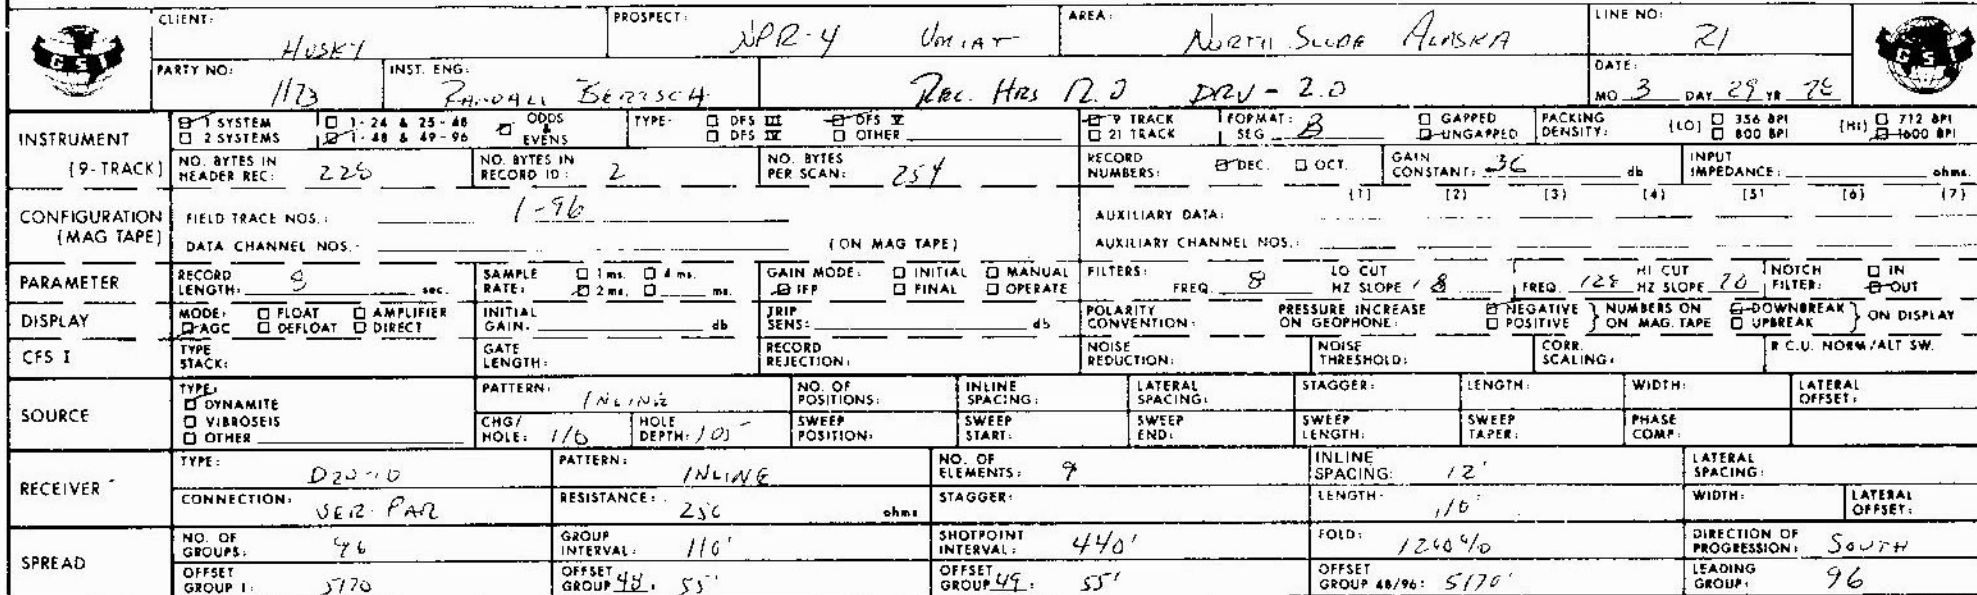 CLIENT: HUSKY PROSPECT: NPR-4 UMIAT AREA: NORTH SLOPE ALASKA LINE NO: 21
GSI
PARTY NO: 1173 INST. ENG: RANDALL REC. HRS DRV - 2.0 DATE: MO 3 DAY 29 YR
GSI
INSTRUMENT (9-TRACK) 1 SYSTEM 2 SYSTEMS 1-24 & 25-48 1-48 & 49-96 ODDS & EVENS TYPE: DFS III DFS IV DFS V OTHER 9 TRACK 21 TRACK FORMAT: SEG B GAPPED UNGAPPED PACKING DENSITY: (LO) 356 BPI 800 BPI (HI) 712 BPI 1600 BPI
NO. BYTES IN HEADER REC: NO. BYTES IN RECORD ID: 2 NO. BYTES PER SCAN: 254 RECORD NUMBERS: DEC. OCT. GAIN CONSTANT: 36 db INPUT IMPEDANCE: ohms.
(1) (2) (3) (4) (5) (6) (7)
CONFIGURATION (MAG TAPE) FIELD TRACE NOS.: 1-96 AUXILIARY DATA:
DATA CHANNEL NOS.- (ON MAG TAPE) AUXILIARY CHANNEL NOS.:
PARAMETER RECORD LENGTH: sec. SAMPLE RATE: 1 ms. 4 ms. 2 ms. ms. GAIN MODE: INITIAL MANUAL IFP FINAL OPERATE FILTERS: FREQ. 8 LO CUT HZ SLOPE 18 FREQ. 128 HI CUT HZ SLOPE 70 NOTCH FILTER: IN OUT
DISPLAY MODE: FLOAT AMPLIFIER AGC DEFLOAT DIRECT INITIAL GAIN. db TRIP SENS: db POLARITY CONVENTION: PRESSURE INCREASE ON GEOPHONE: NEGATIVE POSITIVE NUMBERS ON ON MAG. TAPE DOWNBREAK UPBREAK ON DISPLAY
CFS I TYPE STACK: GATE LENGTH: RECORD REJECTION: NOISE REDUCTION: NOISE THRESHOLD: CORR. SCALING: R.C.U. NORM/ALT SW.
SOURCE TYPE: DYNAMITE VIBROSEIS OTHER PATTERN: INLINE NO. OF POSITIONS: INLINE SPACING: LATERAL SPACING: STAGGER: LENGTH: WIDTH: LATERAL OFFSET:
CHG/ HOLE: HOLE DEPTH: 105 SWEEP POSITION: SWEEP START: SWEEP END: SWEEP LENGTH: SWEEP TAPER: PHASE COMP:
RECEIVER TYPE: PATTERN: INLINE NO. OF ELEMENTS: 9 INLINE SPACING: 12' LATERAL SPACING:
CONNECTION: SER. PAR RESISTANCE: ohms STAGGER: LENGTH- 110 WIDTH: LATERAL OFFSET:
SPREAD NO. OF GROUPS: 96 GROUP INTERVAL: 110' SHOTPOINT INTERVAL: 440' FOLD: 1200% DIRECTION OF PROGRESSION: SOUTH
OFFSET GROUP 1: 5170 OFFSET GROUP 48: 55' OFFSET GROUP 49: 55' OFFSET GROUP 48/96: 5170' LEADING GROUP: 96